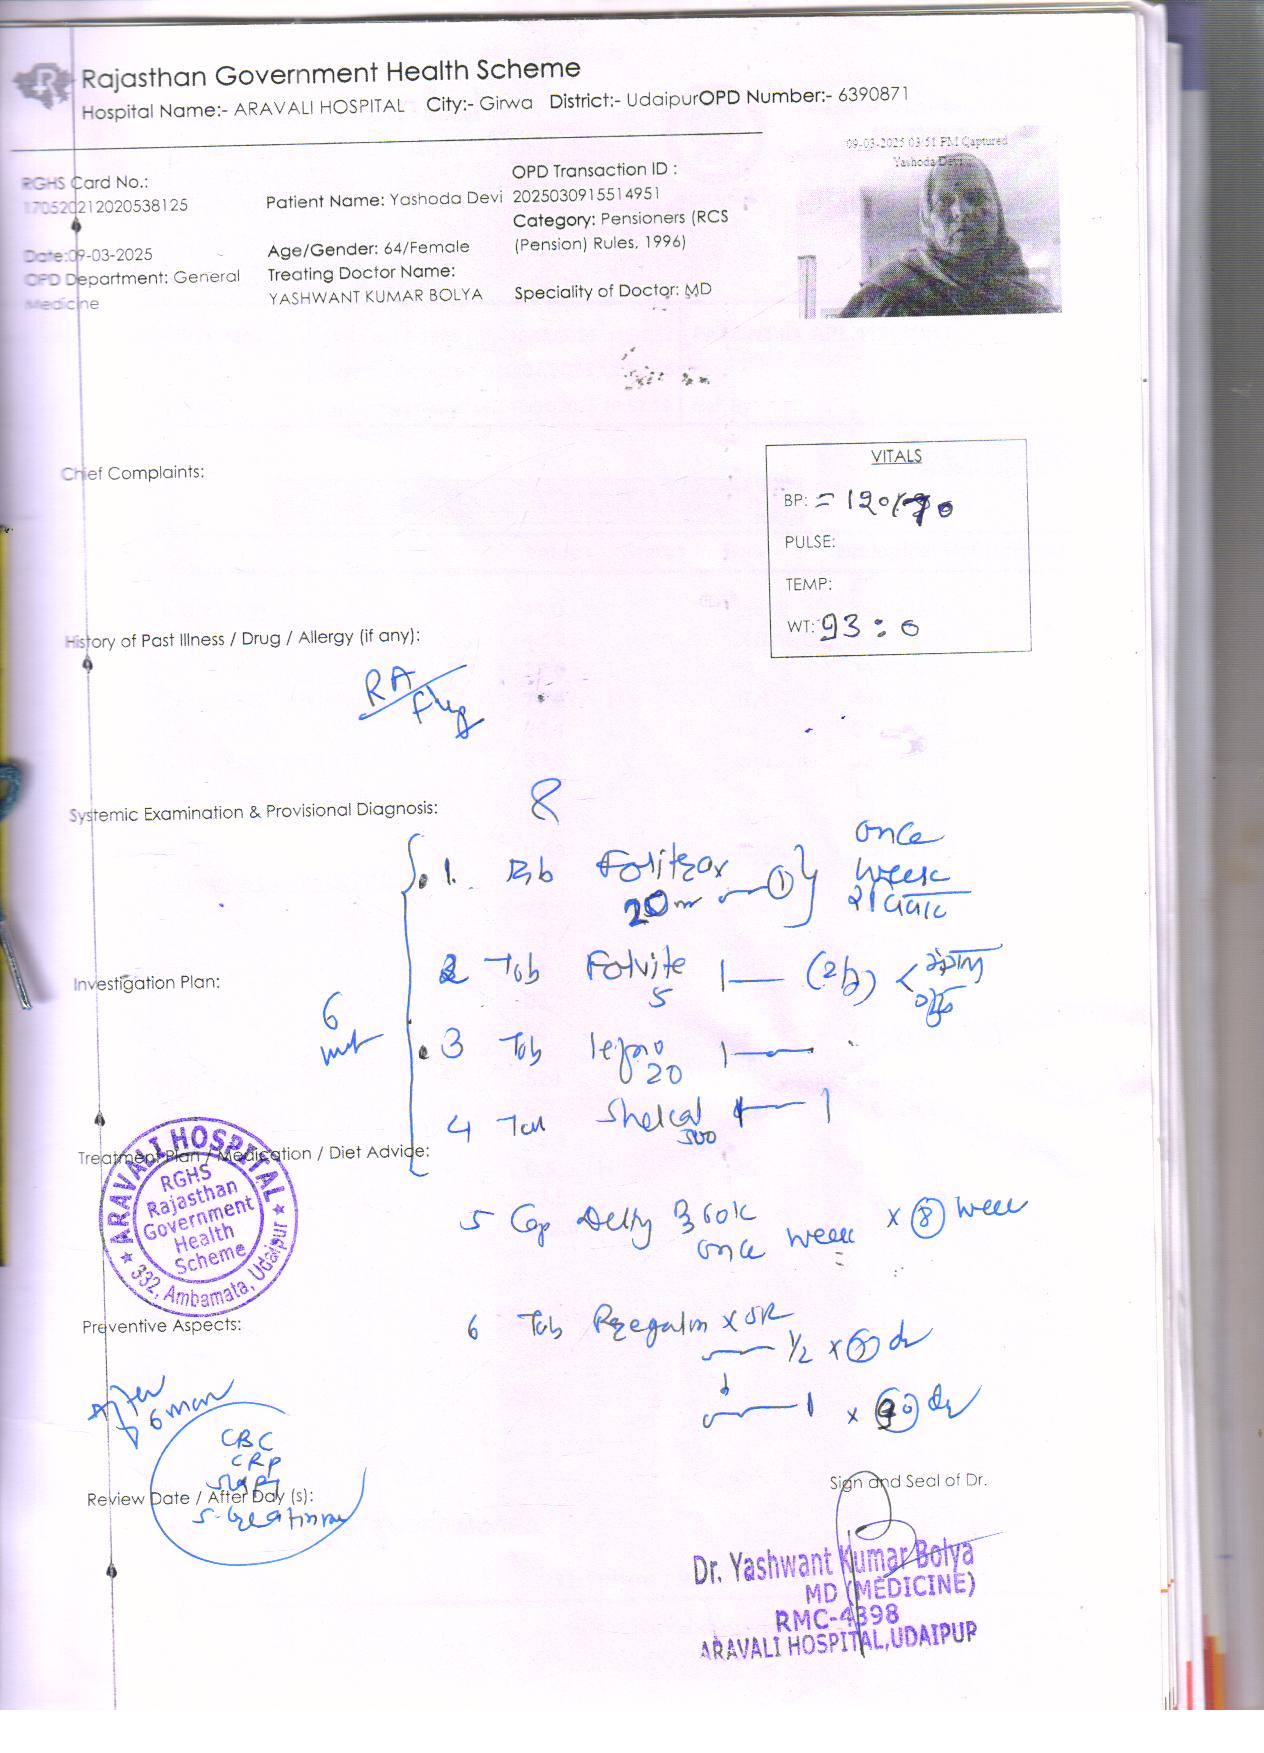 Rajasthan Government Health Scheme
Hospital Name:- ARAVALI HOSPITAL City:- Girwa District:- Udaipur OPD Number:- 6390871
09-03-2025 03:51 PM Captured
Yashoda Devi
RGHS Card No.:
170520212020538125
Date:09-03-2025
OPD Department: General
Medicine
Patient Name: Yashoda Devi
Age/Gender: 64/Female
Treating Doctor Name:
YASHWANT KUMAR BOLYA
OPD Transaction ID :
2025030915514951
Category: Pensioners (RCS
(Pension) Rules, 1996)
Speciality of Doctor: MD
Chief Complaints:
VITALS
BP: = 120/70
PULSE:
TEMP:
WT: 93:0
History of Past Illness / Drug / Allergy (if any):
RA
Systemic Examination & Provisional Diagnosis:
1. Tab Folitrax 20 1 once week
Investigation Plan:
2 Tab Folvite 5 1
6
3 Tab 20 1
4 Tab Shelcal 500 1 1
Treatment Plan / Medication / Diet Advice:
ARAVALI HOSPITAL
RGHS
Rajasthan
Government
Health
Scheme
332, Ambamata, Udaipur
5 Cap 60k once week x 8 week
Preventive Aspects:
6 Tab SR
1/2 x
1 x
After 6
CBC
CRP
Review Date / After Day (s):
S. Creatinine
Sign and Seal of Dr.
Dr. Yashwant Kumar Bolya
MD (MEDICINE)
RMC-4398
ARAVALI HOSPITAL,UDAIPUR